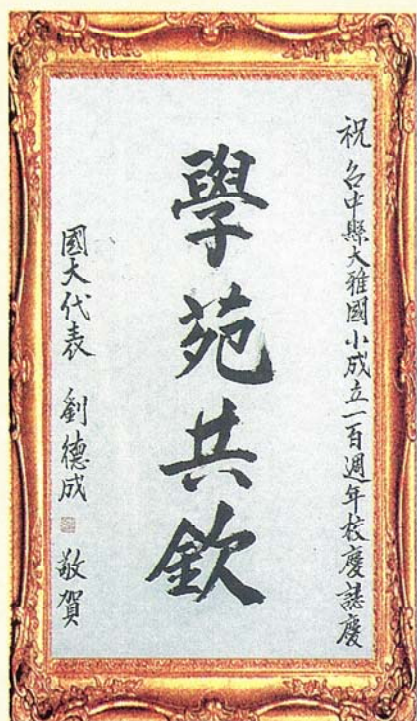 祝 台中縣大雅國小成立一百週年校慶誌慶
學苑共欽
國大代表 劉德成 敬賀